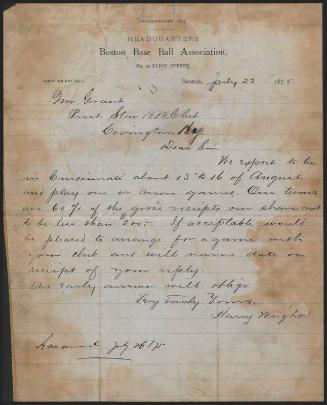 HEADQUARTERS
Boston Base Ball Association,
No. 39 ELIOT STREET.
HARRY WRIGHT, Sec'y.
Boston, July 22 1875.
Wm Grant
Prest Star B.B. Club
Covington Ky
Dear Sir.
We expect to be
in Cincinnati about 13th 16 of August
and play one or more games. Our terms
are 60% of the gross receipts our share not
to be less than 200.— If acceptable would
be pleased to arrange for a game with
your club and will name date on
receipt of your reply.
An early answer will oblige
Very Truly Yours,
Harry Wright
Answered July 26/75